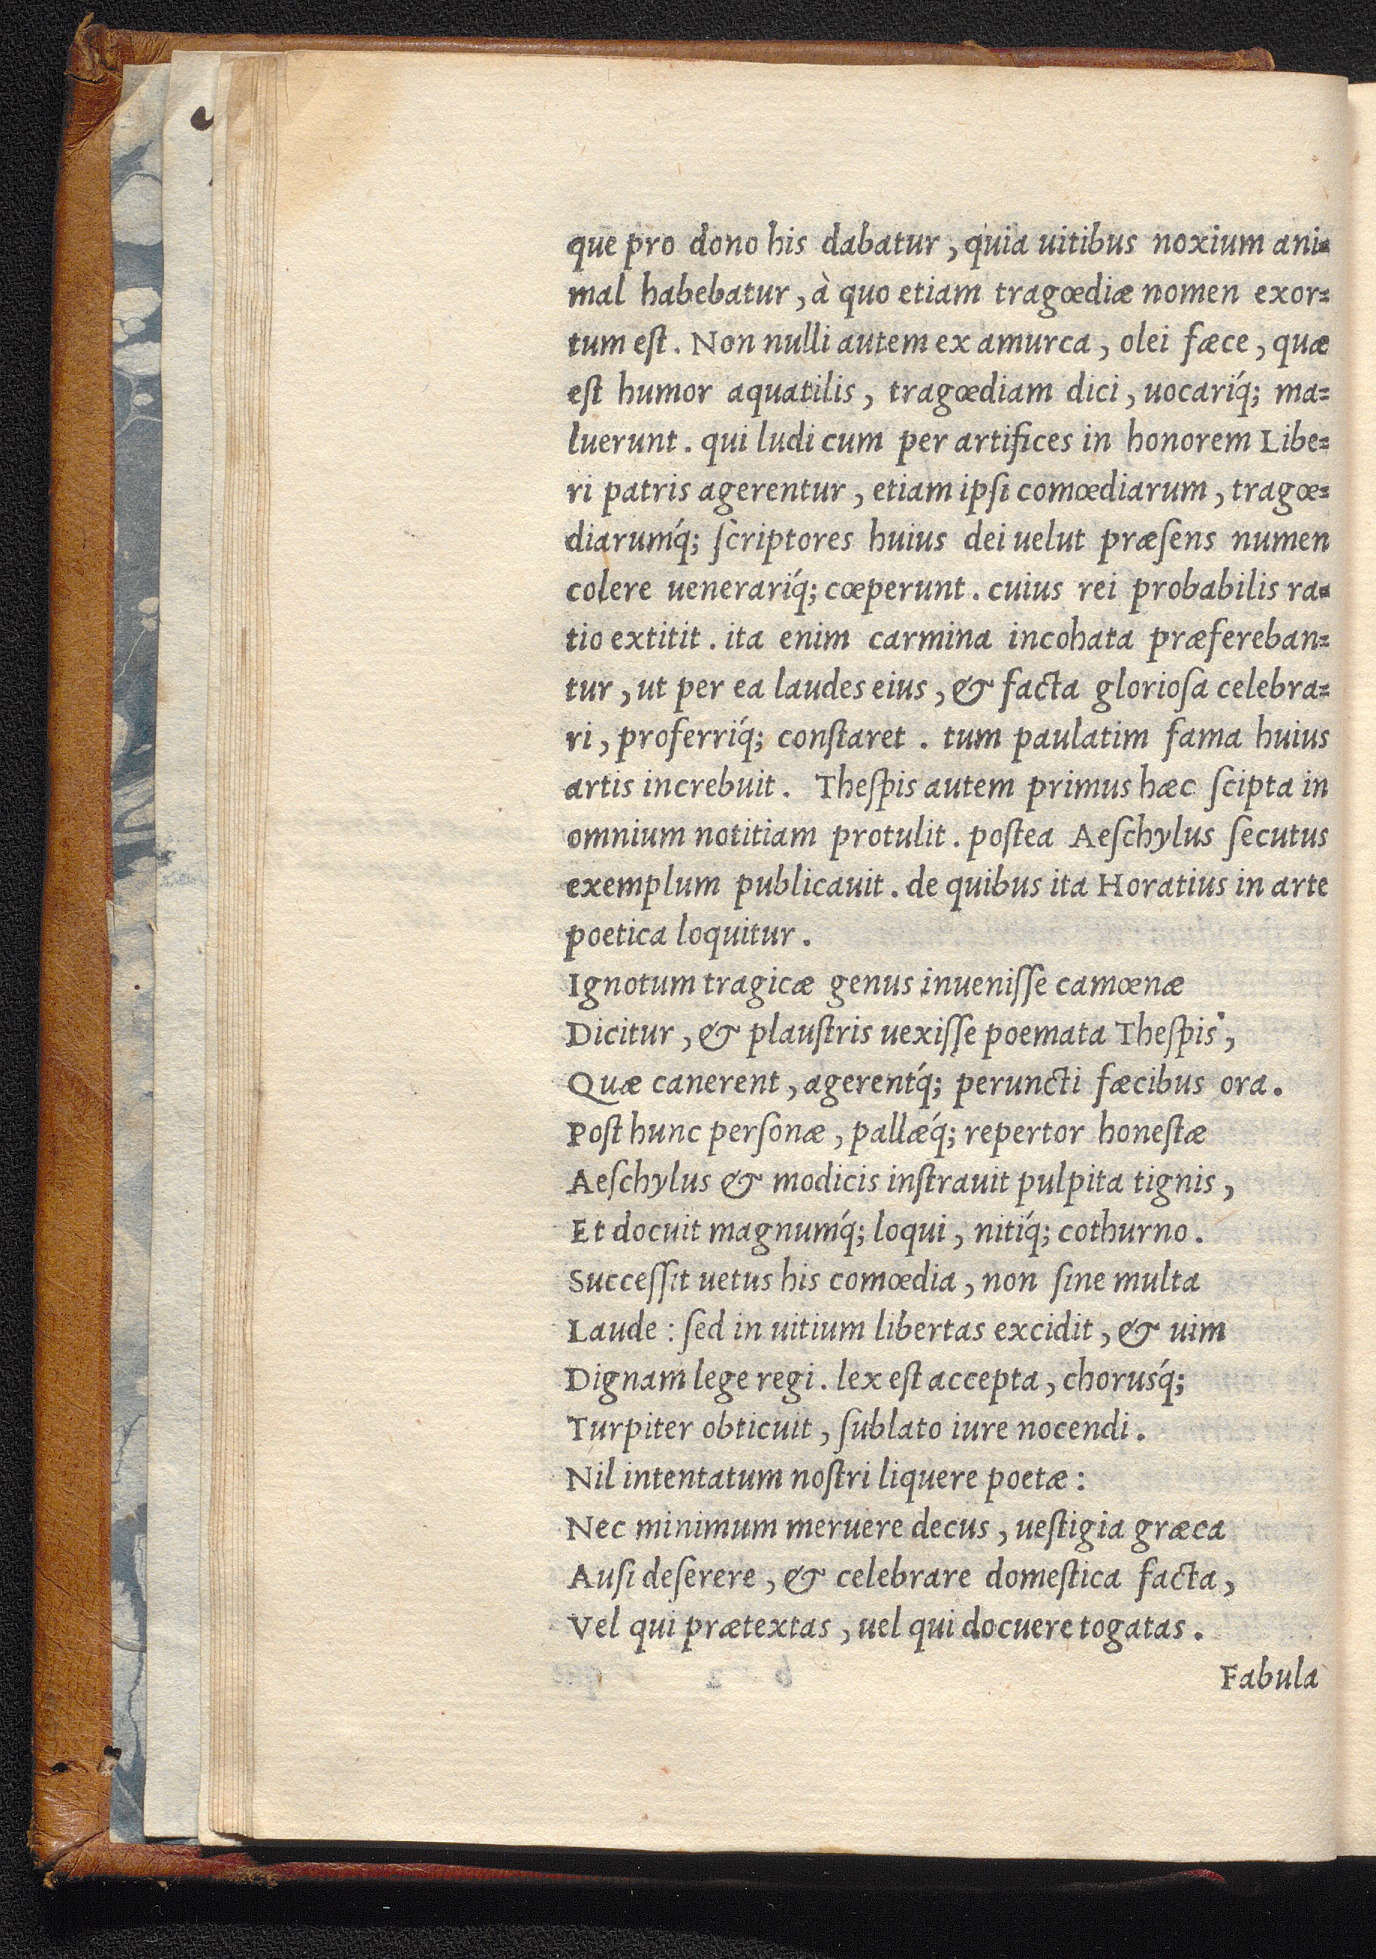 que pro dono his dabatur, quia uitibus noxium ani=
mal habebatur, à quo etiam tragœdiæ nomen exor=
tum eſt. Non nulli autem ex amurca, olei fæce, quæ
eſt humor aquatilis, tragœdiam dici, uocariq́; ma=
luerunt. qui ludi cum per artifices in honorem Libe=
ri patris agerentur, etiam ipſi comœdiarum, tragœ=
diarumq́; ſcriptores huius dei uelut præſens numen
colere uenerariq́; cœperunt. cuius rei probabilis ra=
tio extitit. ita enim carmina incohata præfereban=
tur, ut per ea laudes eius, & facta glorioſa celebra=
ri, proferriq́; conſtaret. tum paulatim fama huius
artis increbuit. Theſpis autem primus hæc ſcipta in
omnium notitiam protulit. poſtea Aeſchylus ſecutus
exemplum publicauit. de quibus ita Horatius in arte
poetica loquitur.
Ignotum tragicæ genus inueniſſe camœnæ
Dicitur, & plauſtris uexiſſe poemata Theſpis,
Quæ canerent, agerentq́; peruncti fæcibus ora.
Poſt hunc perſonæ, pallæq́; repertor honeſtæ
Aeſchylus & modicis inſtrauit pulpita tignis,
Et docuit magnumq́; loqui, nitiq́; cothurno.
Succeſſit uetus his comœdia, non ſine multa
Laude: ſed in uitium libertas excidit, & uim
Dignam lege regi. lex eſt accepta, chorusq́;
Turpiter obticuit, ſublato iure nocendi.
Nil intentatum noſtri liquere poetæ:
Nec minimum meruere decus, ueſtigia græca
Auſi deſerere, & celebrare domeſtica facta,
Vel qui prætextas, uel qui docuere togatas.
Fabula